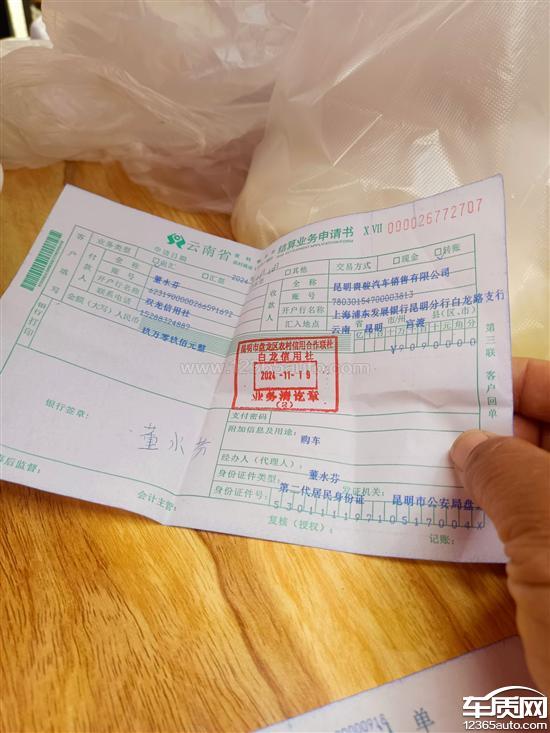 云南省
结算业务申请书 XVII 000026772707
业务类型
申请日期
2024
其他
交易方式
现金
转账
客户填写
付款人
全称
董水芬
账号
6231900000266591692
开户行名称
双龙信用社
联系电话
15288324882
金额(大写)人民币
玖万零玖佰元整
收款人
全称
昆明贵骏汽车销售有限公司
账号
78030154700003813
开户行名称
上海浦东发展银行昆明分行白龙路支行
汇入地点
云南 省 昆明 市/州 官渡 县(区、市)
¥9090000
昆明市盘龙区农村信用合作联社
白龙信用社
2024-11-19
业务清讫章
(2)
银行打印
支付密码
附加信息及用途:
购车
银行签章:
董水芬
经办人(代理人):
董水芬
身份证件类型:
第二代居民身份证
发证机关:
昆明市公安局盘
身份证件号:
53011119710517004X
复核(授权):
记账:
事后监督:
会计主管:
第三联 客户回单
www.12365auto.com
单
车质网
12365auto.com